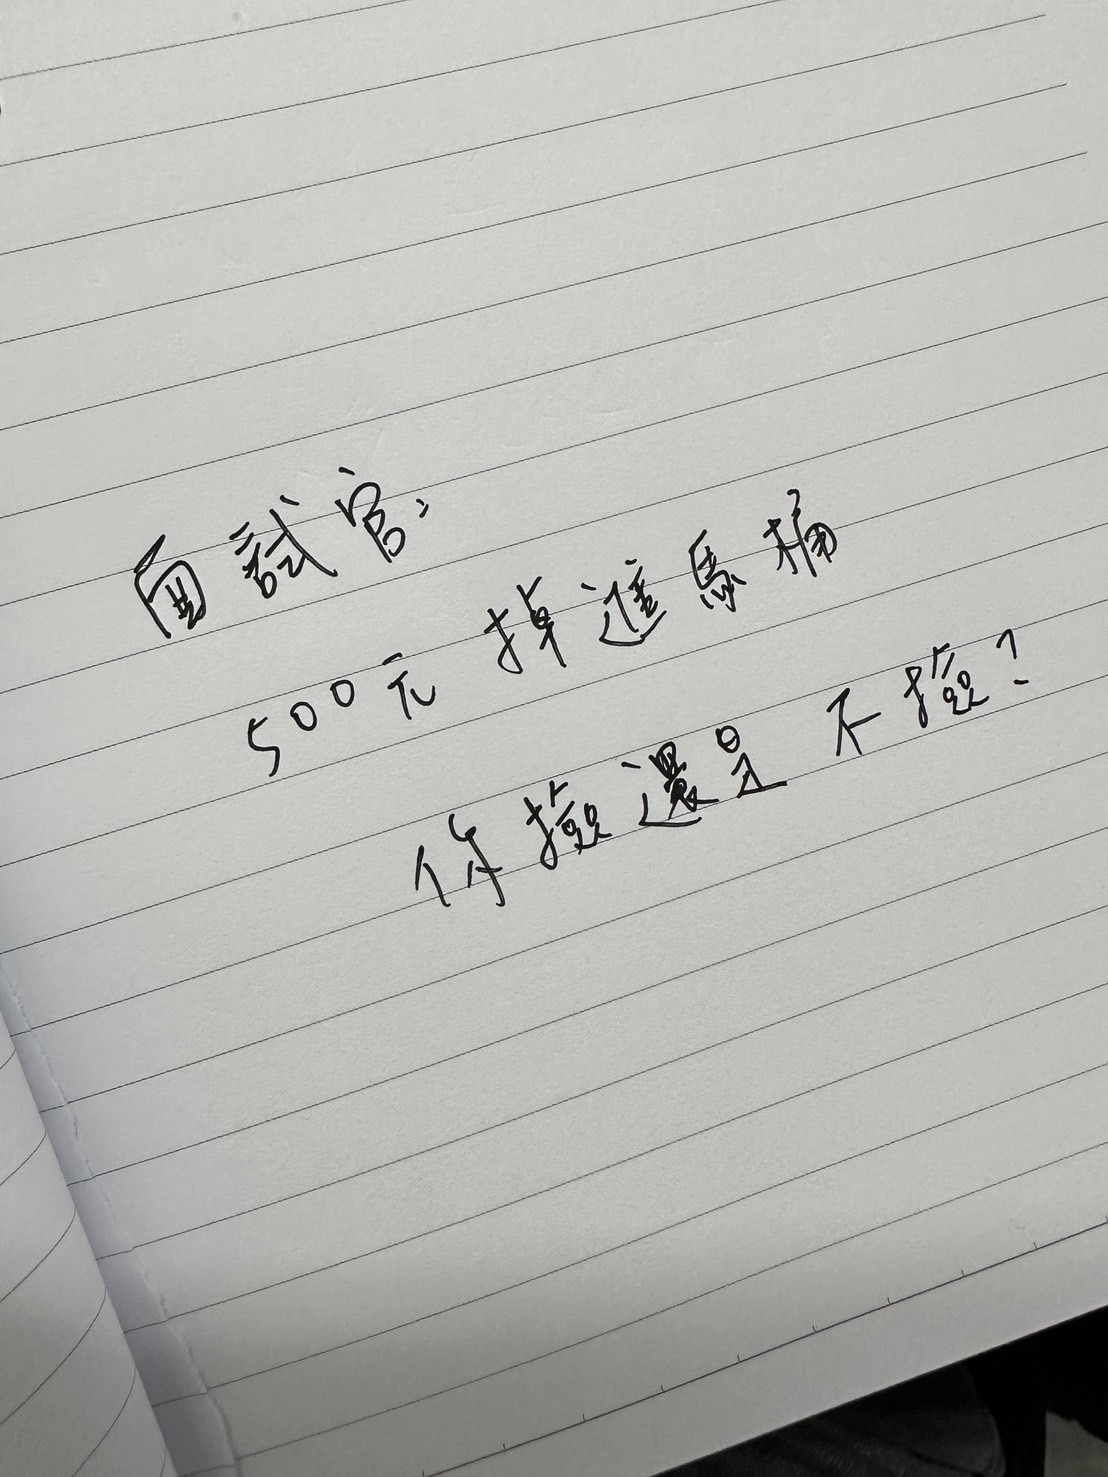 面試官：
500元掉進馬桶
你撿還是不撿？